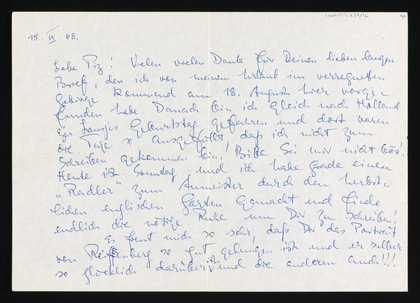 15. IX 68.
Liebe Piz! Vielen vielen Dank für Deinen lieben langen
Brief, den ich von meinem Urlaub im verregneten
Gebirge kommend am 18. August hier vorge-
funden habe. Danach bin ich gleich nach Holland
zu Geburtstag gefahren und dort waren
die Tage so ausgefüllt, daß ich nicht zum
Schreiben gekommen bin! Bitte sei mir nicht bös!
Heute ist Sonntag, und ich habe grade einen
"Radler" zum Aumeister durch den herbst-
lichen englischen Garten gemacht und finde
endlich die nötige Ruhe um Dir zu schreiben!
Es freut mich so sehr, daß Dir das Portrait
von so gut gelungen ist und er selber
so glücklich darüber ist und die anderen auch!!!